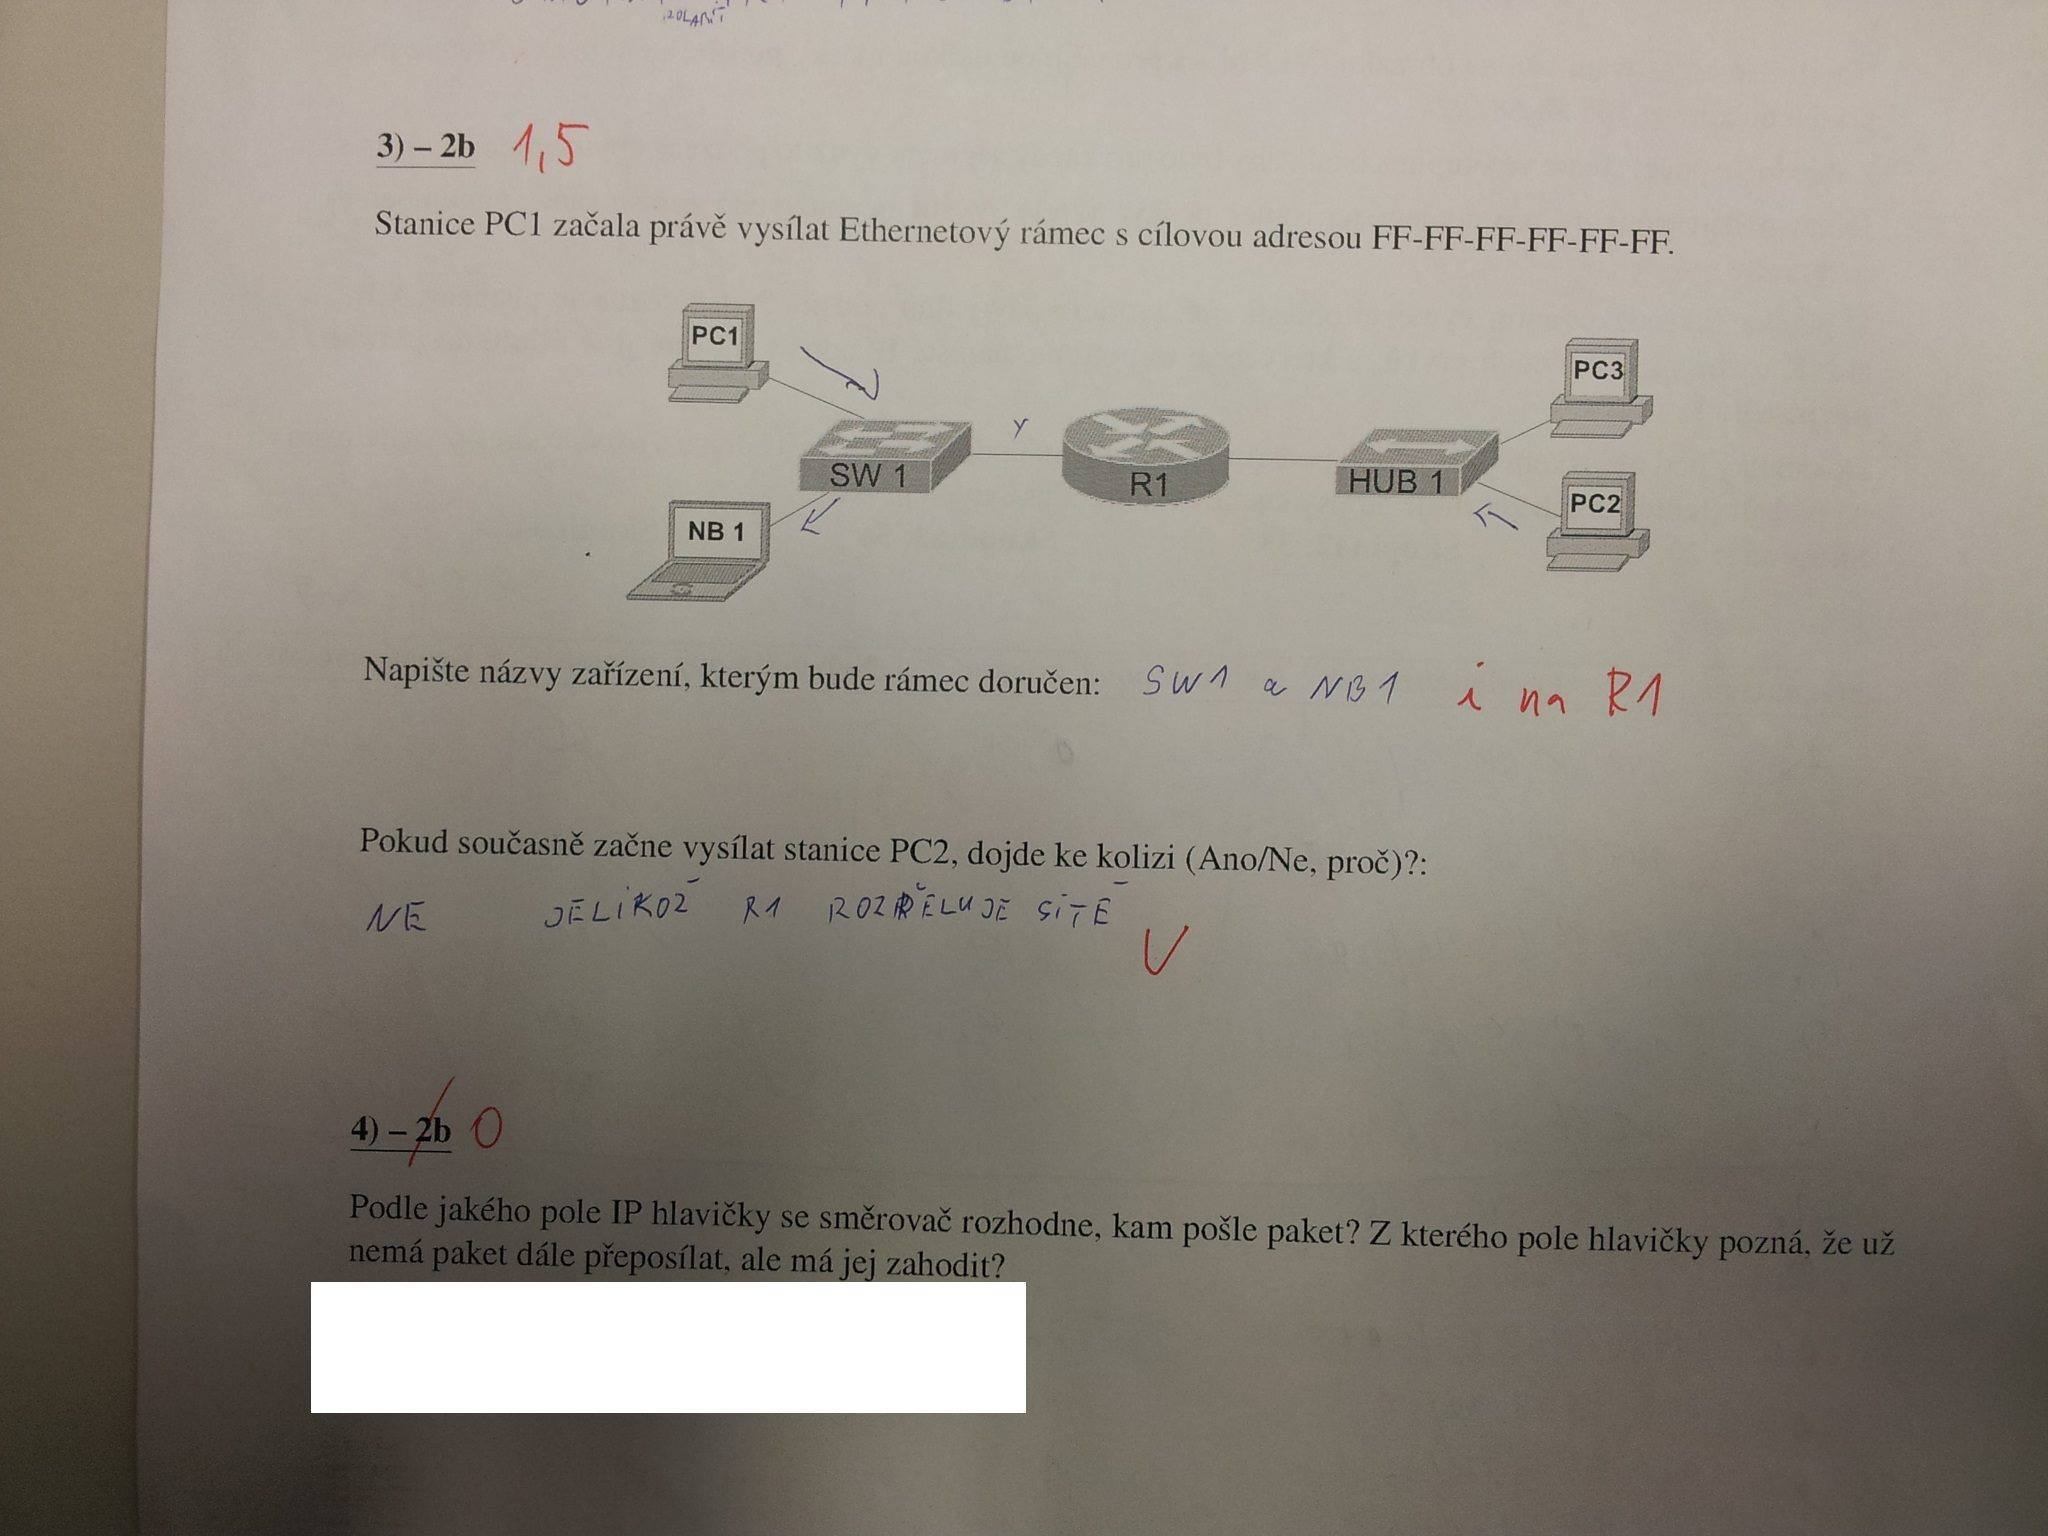 3) – 2b 1,5
Stanice PC1 začala právě vysílat Ethernetový rámec s cílovou adresou FF-FF-FF-FF-FF-FF.
PC1
PC3
Y
SW 1
R1
HUB 1
PC2
NB 1
Napište názvy zařízení, kterým bude rámec doručen: SW1 a NB1 i na R1
Pokud současně začne vysílat stanice PC2, dojde ke kolizi (Ano/Ne, proč)?:
NE JELIKOŽ R1 ROZDĚLUJE SÍTĚ
4) – 2b 0
Podle jakého pole IP hlavičky se směrovač rozhodne, kam pošle paket? Z kterého pole hlavičky pozná, že už
nemá paket dále přeposílat, ale má jej zahodit?